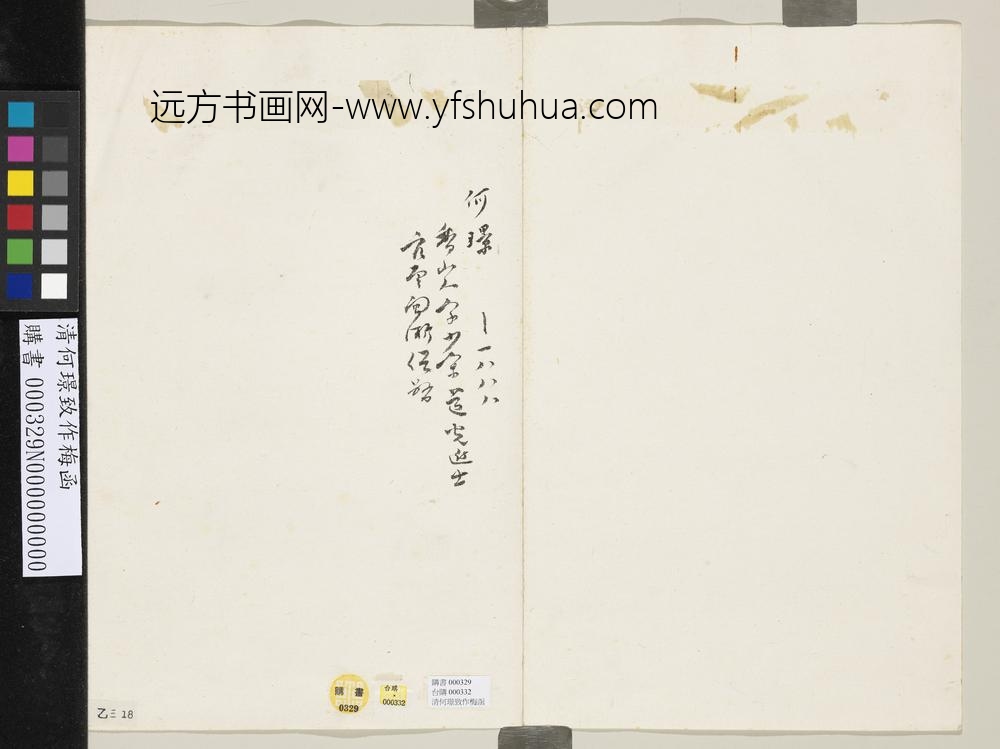 远方书画网-www.yfshuhua.com
何璟
—一八八八
香山人字少宋道光進士
官至閩浙總督
清何璟致作梅函
購書 000329N000000000
購書
0329
台購
000332
購書 000329
台購 000332
清何璟致作梅函
乙三 18